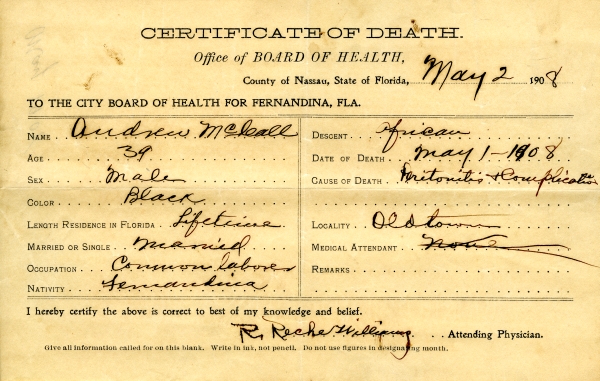 CERTIFICATE OF DEATH.
Office of BOARD OF HEALTH,
County of Nassau, State of Florida, May 2 1908
TO THE CITY BOARD OF HEALTH FOR FERNANDINA, FLA.
NAME Andrew McCall
AGE 39
SEX Male
COLOR Black
LENGTH RESIDENCE IN FLORIDA Lifetime
MARRIED OR SINGLE Married
OCCUPATION Common laborer
NATIVITY Fernandina
DESCENT African
DATE OF DEATH May 1-1908
CAUSE OF DEATH Peritonitis + Complication
LOCALITY Old town
MEDICAL ATTENDANT None
REMARKS
I hereby certify the above is correct to best of my knowledge and belief.
R. Williams Attending Physician.
Give all information called for on this blank. Write in ink, not pencil. Do not use figures in designating month.